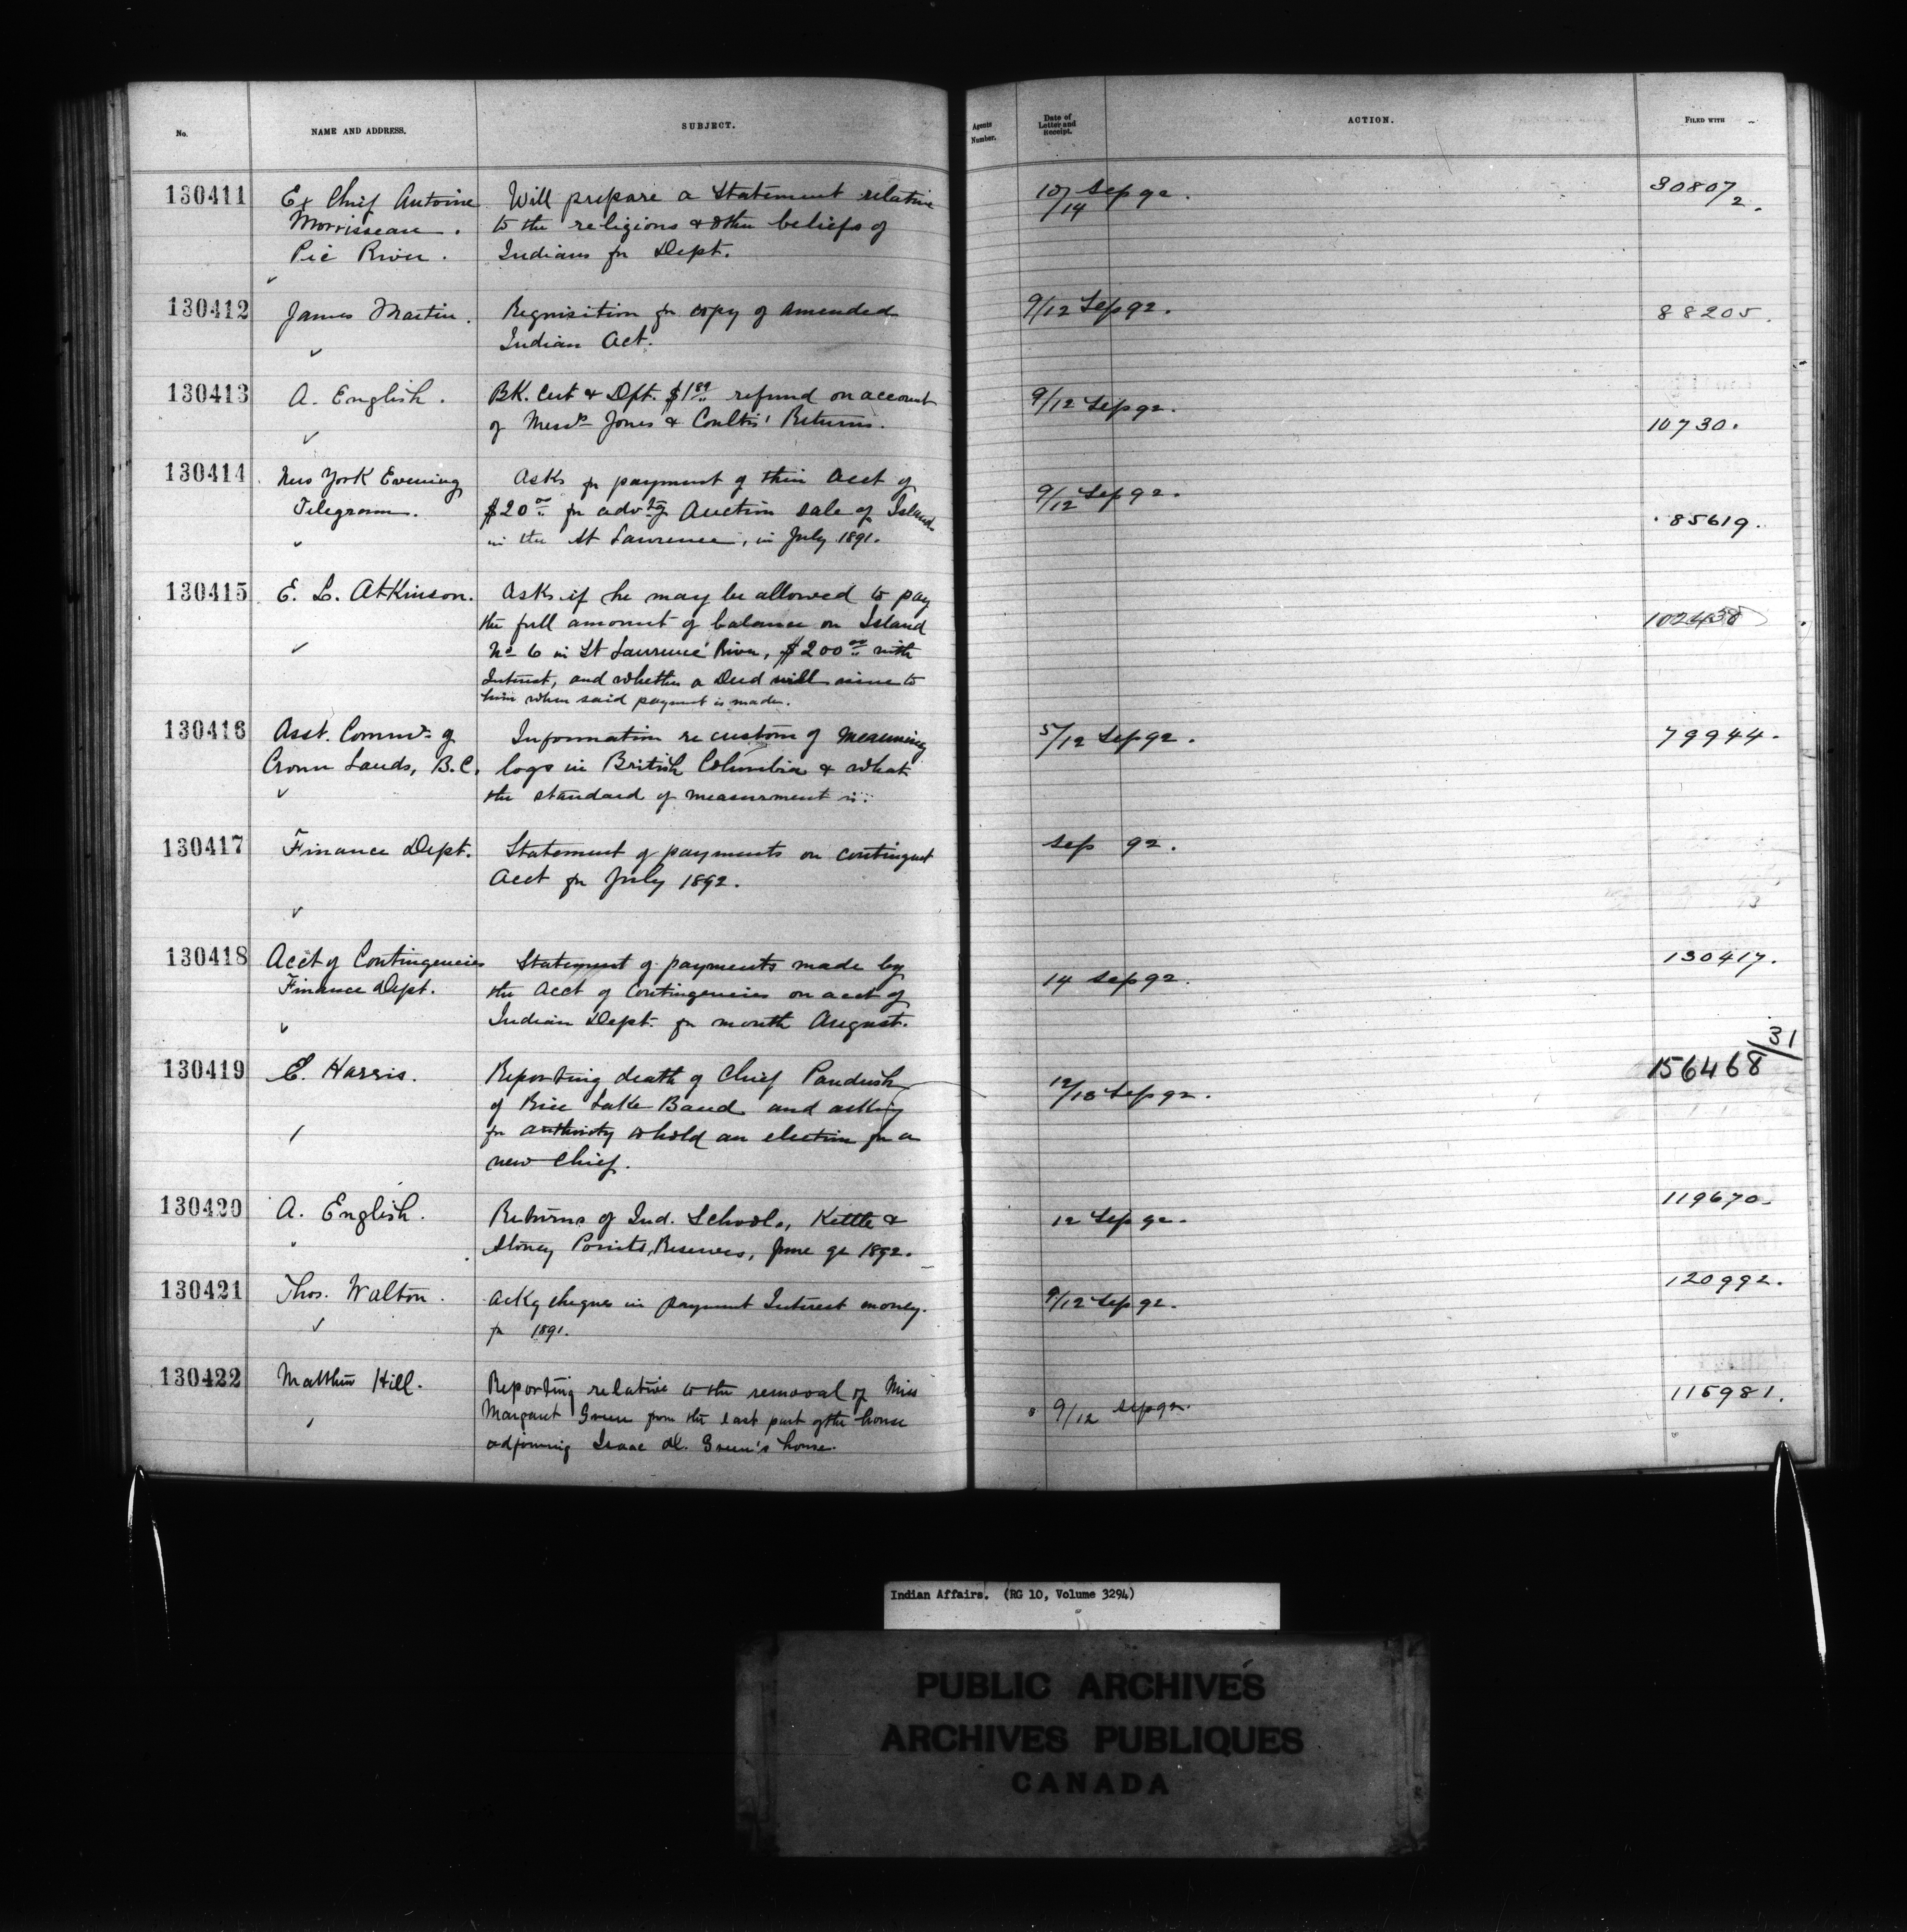 No. NAME AND ADDRESS. SUBJECT. Agents Number. Date of Letter and Receipt. ACTION. FILED WITH
130411 Ex Chief Antoine Will prepare a Statement relative 10/14 Sep 92. 30807/2.
Morrisseau. to the religions & other beliefs of
Pic River. Indians for Dept.
130412 James Martin. Requisition for copy of amended 9/12 Sep 92. 88205.
Indian Act.
130413 A. English. BK. Cert & Dft. $1.89 refund on account 9/12 Sep 92.
of Messrs Jones & Coultis' Returns. 10730.
130414 New York Evening Asks for payment of their Acct of 9/12 Sep 92.
Telegram. $20.00 for advtg Auction sale of Islands 85619.
in the St Lawrence, in July 1891.
130415 E. L. Atkinson. Asks if he may be allowed to pay
the full amount of balance on Island 102438
No 6 in St Lawrence River, $200.00 with
Interest, and whether a Deed will issue to
him when said payment is made.
130416 Asst. Commr. of Information re custom of measuring 5/12 Sep 92. 79944.
Crown Lands, B.C. logs in British Columbia & what
the standard of measurement is.
130417 Finance Dept. Statement of payments on contingent Sep 92.
Acct for July 1892.
130418 Acct of Contingencies Statement of payments made by 14 Sep 92. 130417.
Finance Dept. the Acct of Contingencies on acct of
Indian Dept. for month August.
130419 E. Harris. Reporting death of Chief Paudash 12/13 Sep 92. 156468/31
of Rice Lake Band and asking
for authority to hold an election for a
new Chief.
130420 A. English. Returns of Ind. Schools, Kettle & 12 Sep 92. 119670.
Stoney Points, Reserves, June qr 1892.
130421 Thos. Walton. Ackg cheques in payment Interest money. 9/12 Sep 92. 120992.
for 1891.
130422 Matthew Hill. Reporting relative to the removal of Miss 9/12 Sep 92. 115981.
Margaret Green from the east part of the house
adjoining Isaac Green's house.
Indian Affairs. (RG 10, Volume 3294)
PUBLIC ARCHIVES
ARCHIVES PUBLIQUES
CANADA